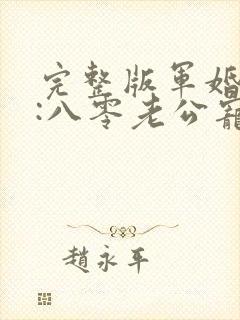 完整版軍婚
:八零老公寵
趙永平